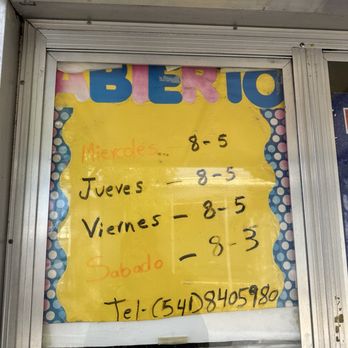 ABIERTO
Miercoles - 8-5
Jueves - 8-5
Viernes - 8-5
Sabado - 8-3
Tel-(541)8405980